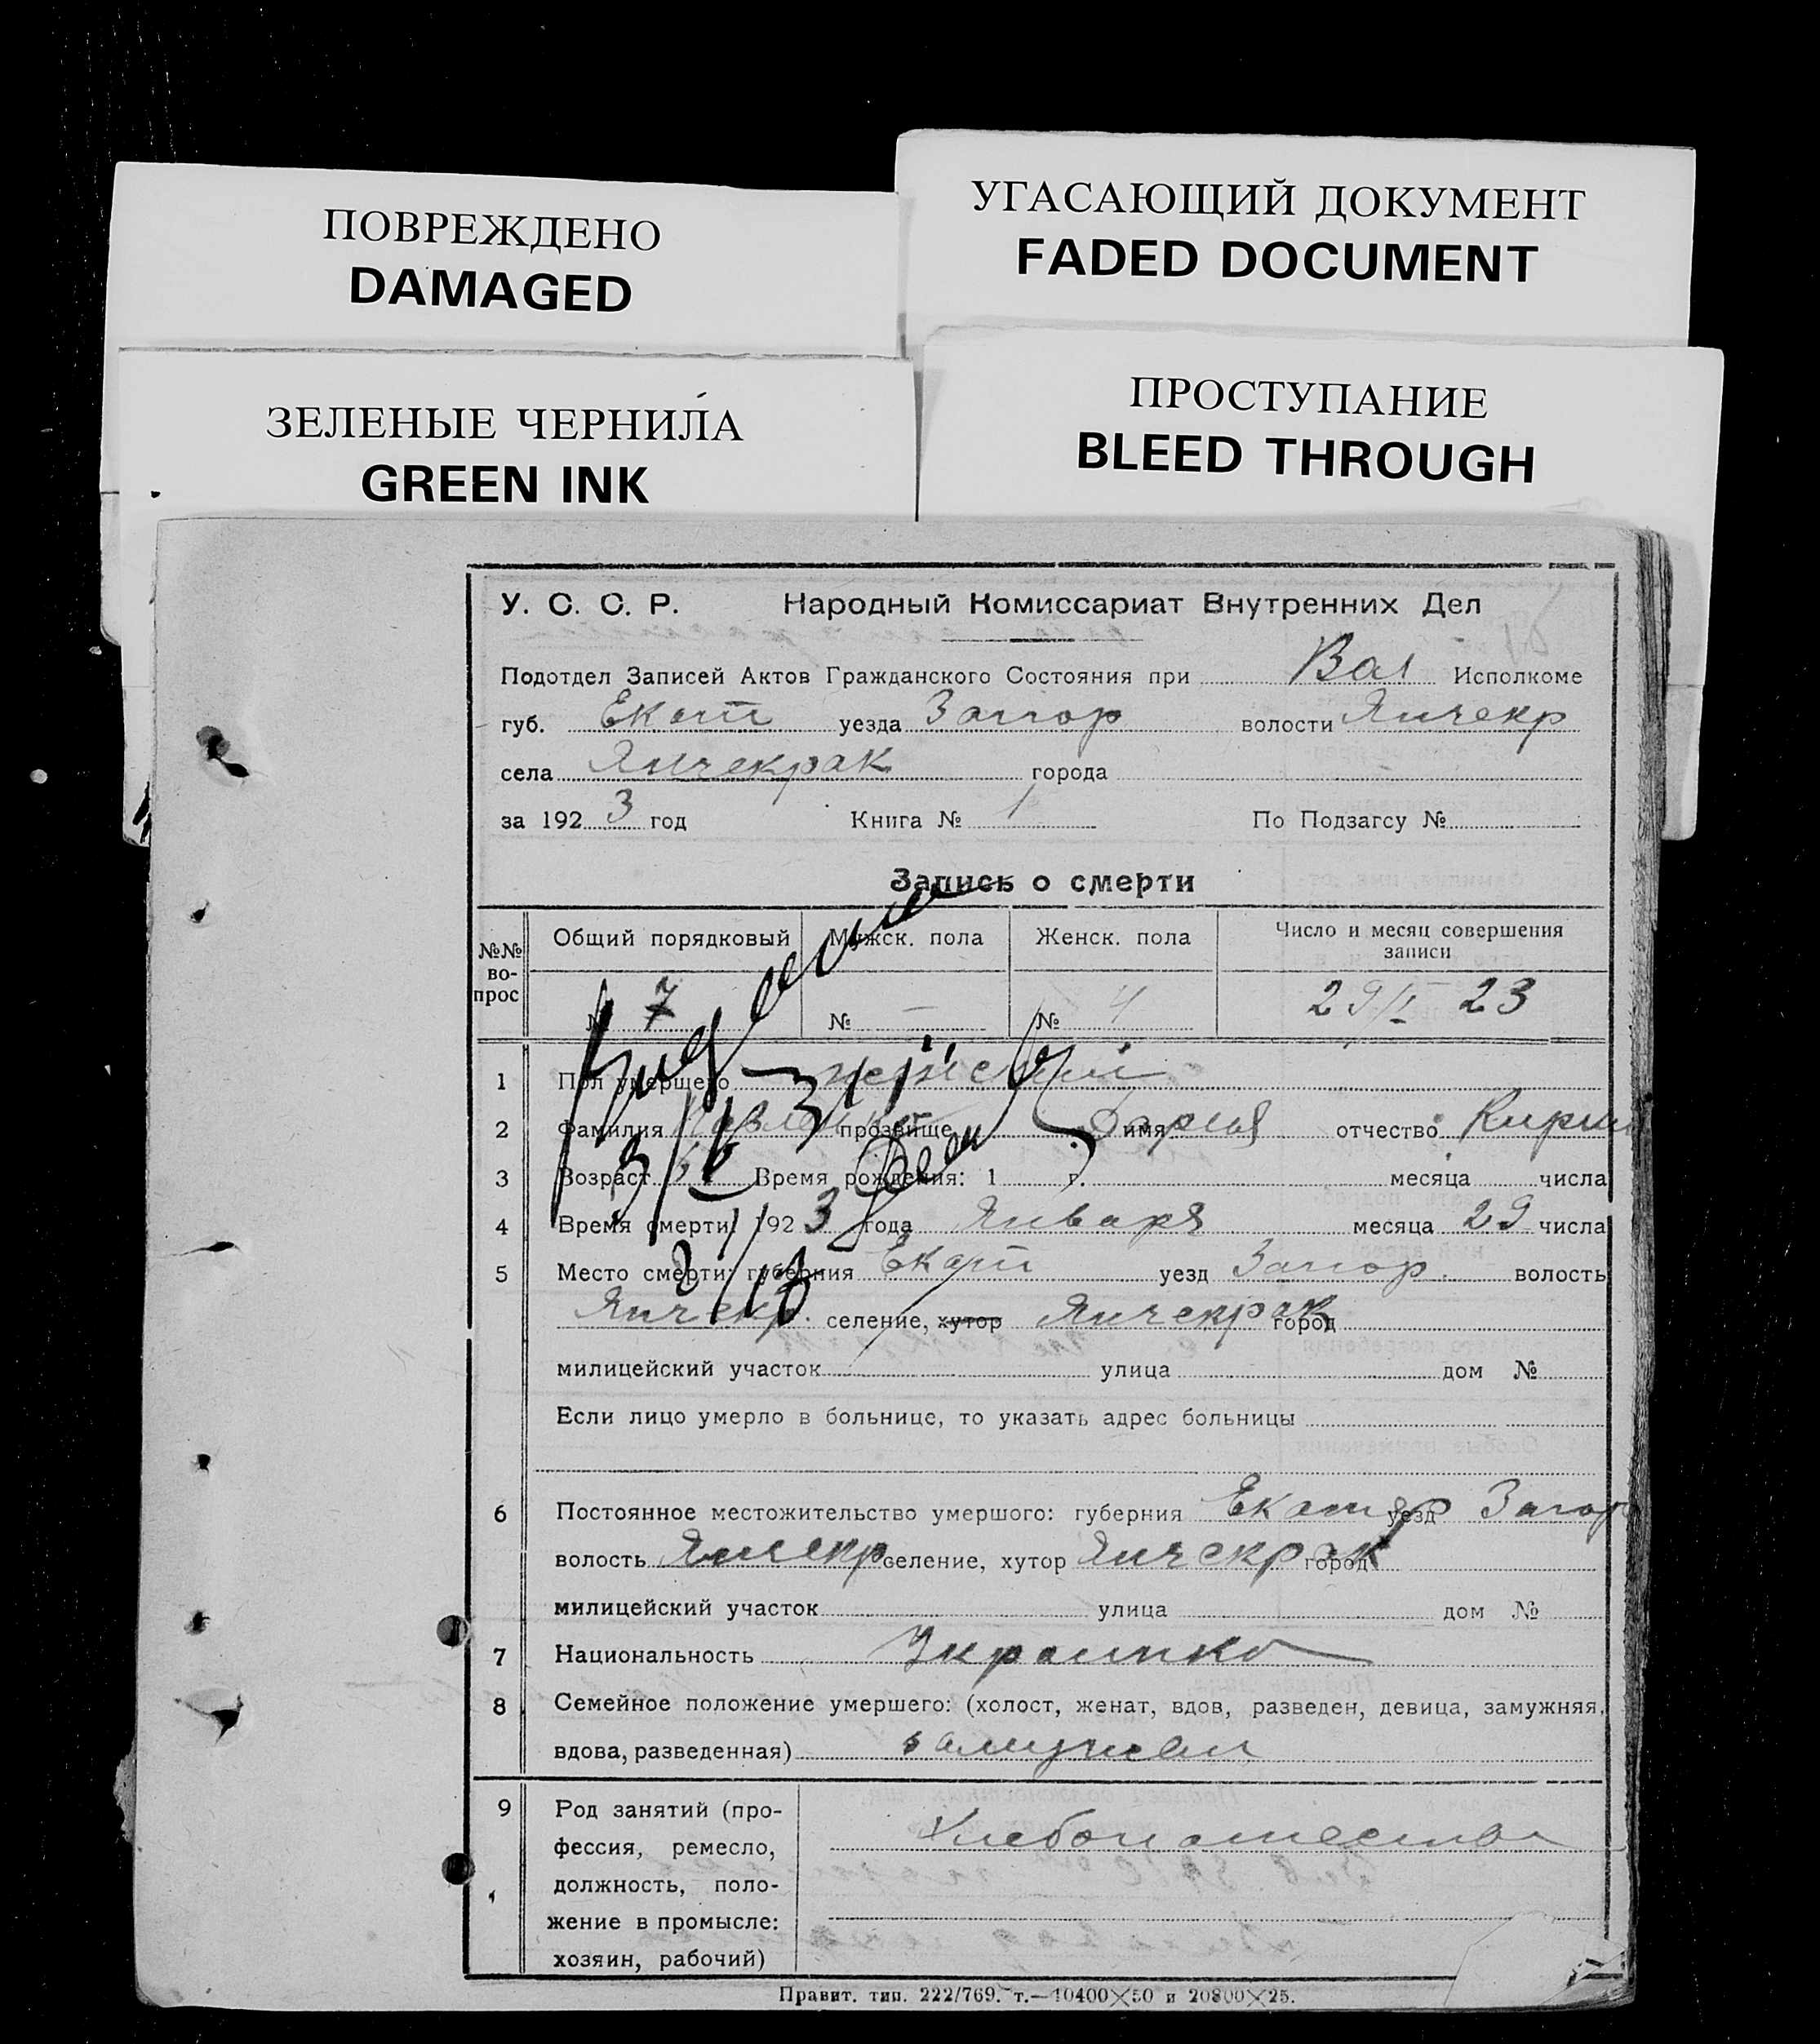 ПОВРЕЖДЕНО
DAMAGED
УГАСАЮЩИЙ ДОКУМЕНТ
FADED DOCUMENT
ЗЕЛЕНЫЕ ЧЕРНИЛА
GREEN INK
ПРОСТУПАНИЕ
BLEED THROUGH
У. С. С. Р. Народный Комиссариат Внутренних Дел
Подотдел Записей Актов Гражданского Состояния при Вол Исполкоме
губ. Екат уезда Запор волости Янчекр
села Янчекрак города
за 1923 год Книга № 1 По Подзагсу №
Запись о смерти
№№ вопрос Общий порядковый Мужск. пола Женск. пола Число и месяц совершения записи
№ 7 № — № 4 29/I 23
1 Пол умершего женский
2 Фамилия прозвище имя Дарья отчество
3 Возраст Время рождения: 1 г. месяца числа
4 Время смерти 1923 года Января месяца 29 числа
5 Место смерти: губерния Екат уезд Запор. волость
Янчекр. селение, хутор Янчекрак город
милицейский участок улица дом №
Если лицо умерло в больнице, то указать адрес больницы
6 Постоянное местожительство умершого: губерния Екатер уезд Запор
волость Янчекр селение, хутор Янчекрак город
милицейский участок улица дом №
7 Национальность Украинка
8 Семейное положение умершего: (холост, женат, вдов, разведен, девица, замужняя,
вдова, разведенная) замужняя
9 Род занятий (про-
фессия, ремесло,
должность, поло-
жение в промысле:
хозяин, рабочий)
Хлебопашество
Правит. тип. 222/769. т.—10400×50 и 20800×25.